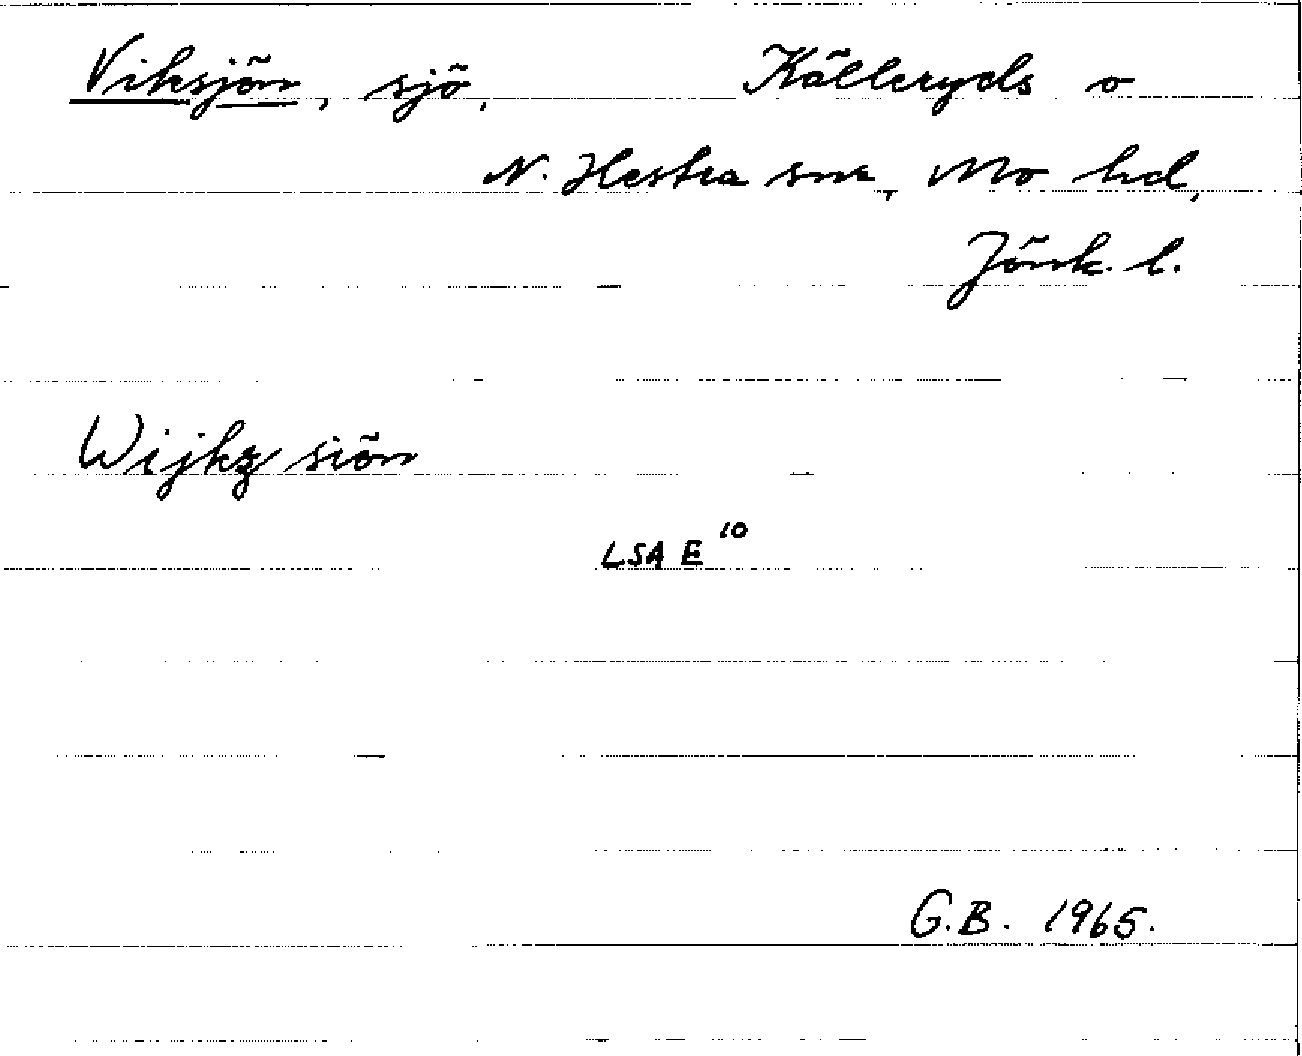 Viksjön, sjö, Källeryds o
N. Hestra snr, Mo hd,
Jönk. l.
Wijkz siön
LSA E 10
G.B. 1965.